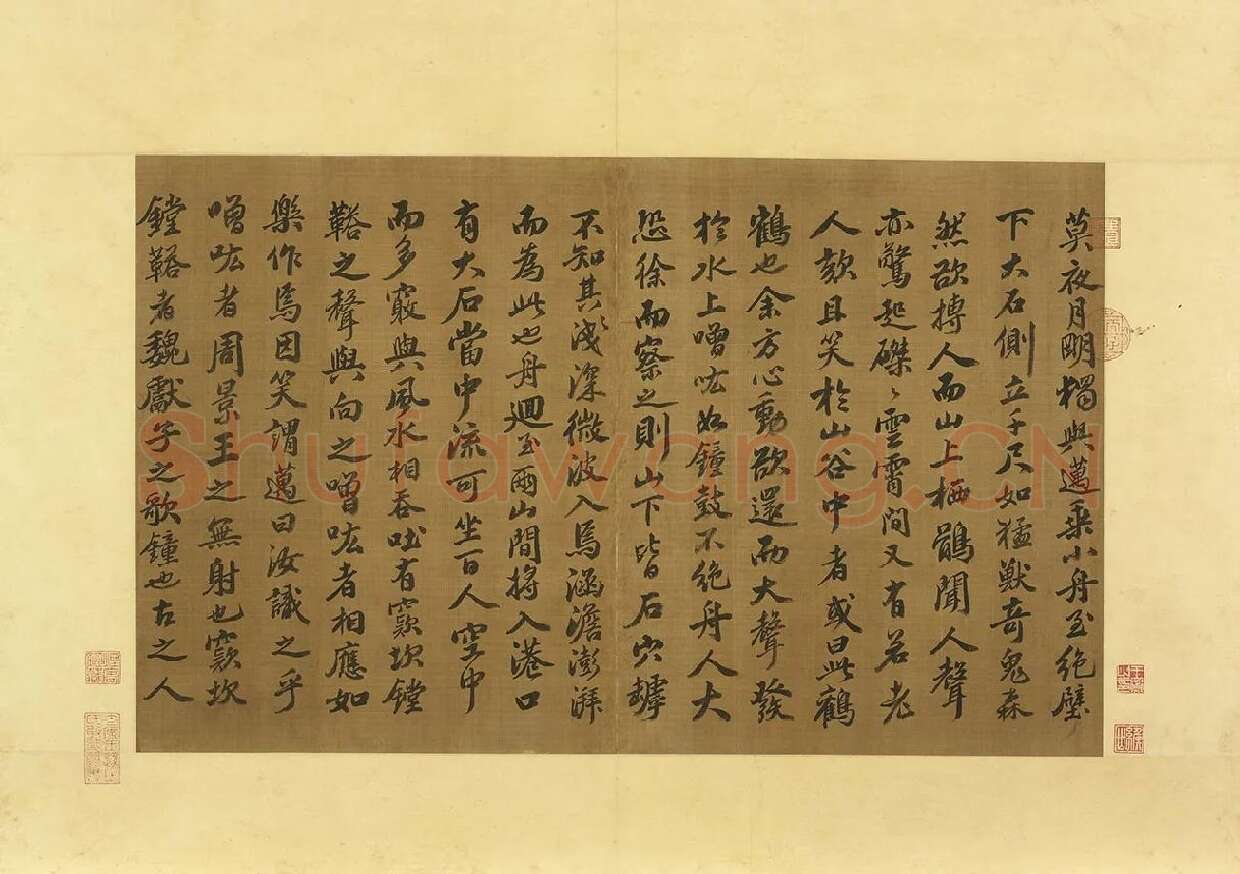 莫夜月明獨與邁乗小舟至絶壁
下大石側立千尺如猛獸竒鬼森
然欲搏人而山上栖鶻聞人聲
亦驚起磔〻雲霄間又有若老
人欬且笑於山谷中者或曰此鶴
鶴也余方心動欲還而大聲發
於水上噌吰如鐘鼓不絶舟人大
恐徐而察之則山下皆石穴罅
不知其淺深微波入焉涵澹澎湃
而為此也舟迴至兩山間將入港口
有大石當中流可坐百人空中
而多竅與風水相吞吐有窾坎鏜
鞳之聲與向之噌吰者相應如
樂作焉因笑謂邁曰汝識之乎
噌吰者周景王之無射也窾坎
鏜鞳者魏獻子之歌鐘也古之人
Shufawang.CN